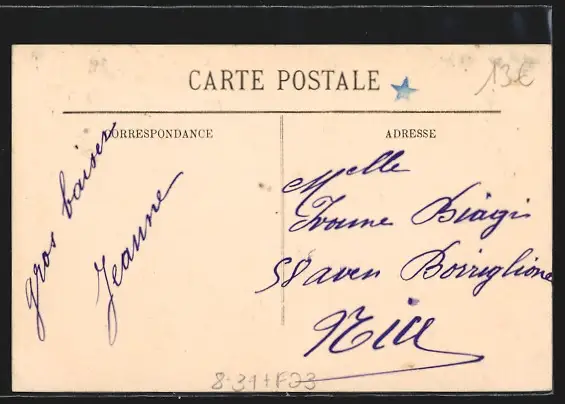 CARTE POSTALE
13€
CORRESPONDANCE
ADRESSE
gros baiser
Jeanne
Melle
Yvonne Biagi
58 aven Borriglione
Nice
8-31+F23